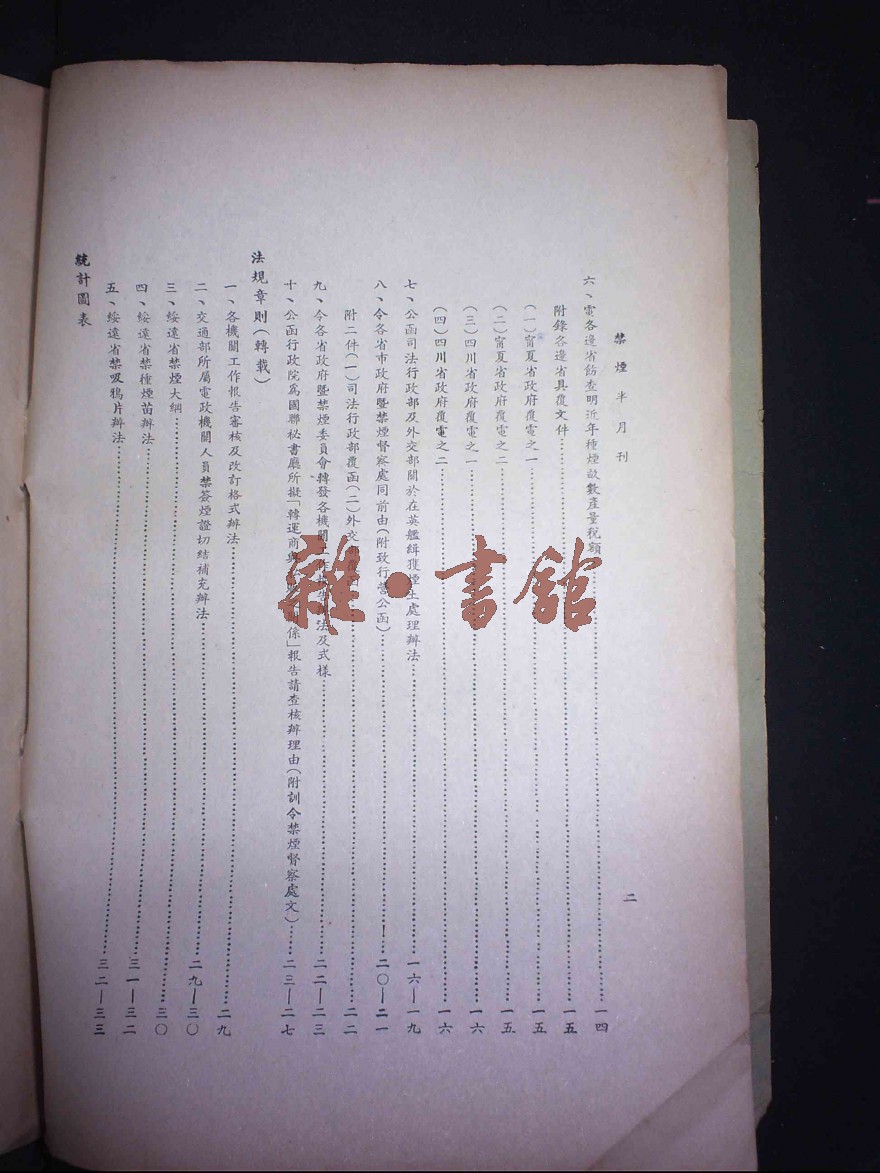 禁煙半月刊
二
六、電各邊省飭查明近年種煙畝數產量稅額……一四
附錄各邊省具覆文件……一五
(一)甯夏省政府覆電之一……一五
(二)甯夏省政府覆電之二……一五
(三)四川省政府覆電之一……一六
(四)四川省政府覆電之二……一六
七、公函司法行政部及外交部關於在英艦緝獲煙土處理辦法……一六—一九
八、令各省市政府暨禁煙督察處同前由(附致行營公函)……二〇—二一
附二件(一)司法行政部覆函(二)外交部……二二
九、令各省政府暨禁煙委員會轉發各機關工作法及式樣……二二—二三
十、公函行政院為國聯秘書廳所擬「轉運商與係」報告請查核辦理由(附訓令禁煙督察處文)……二三—二七
法規章則(轉載)
一、各機關工作報告審核及改訂格式辦法……二九
二、交通部所屬電政機關人員禁簽煙證切結補充辦法……二九—三〇
三、綏遠省禁煙大綱……三〇
四、綏遠省禁種煙苗辦法……三一—三二
五、綏遠省禁吸鴉片辦法……三二—三三
統計圖表
雜·書館